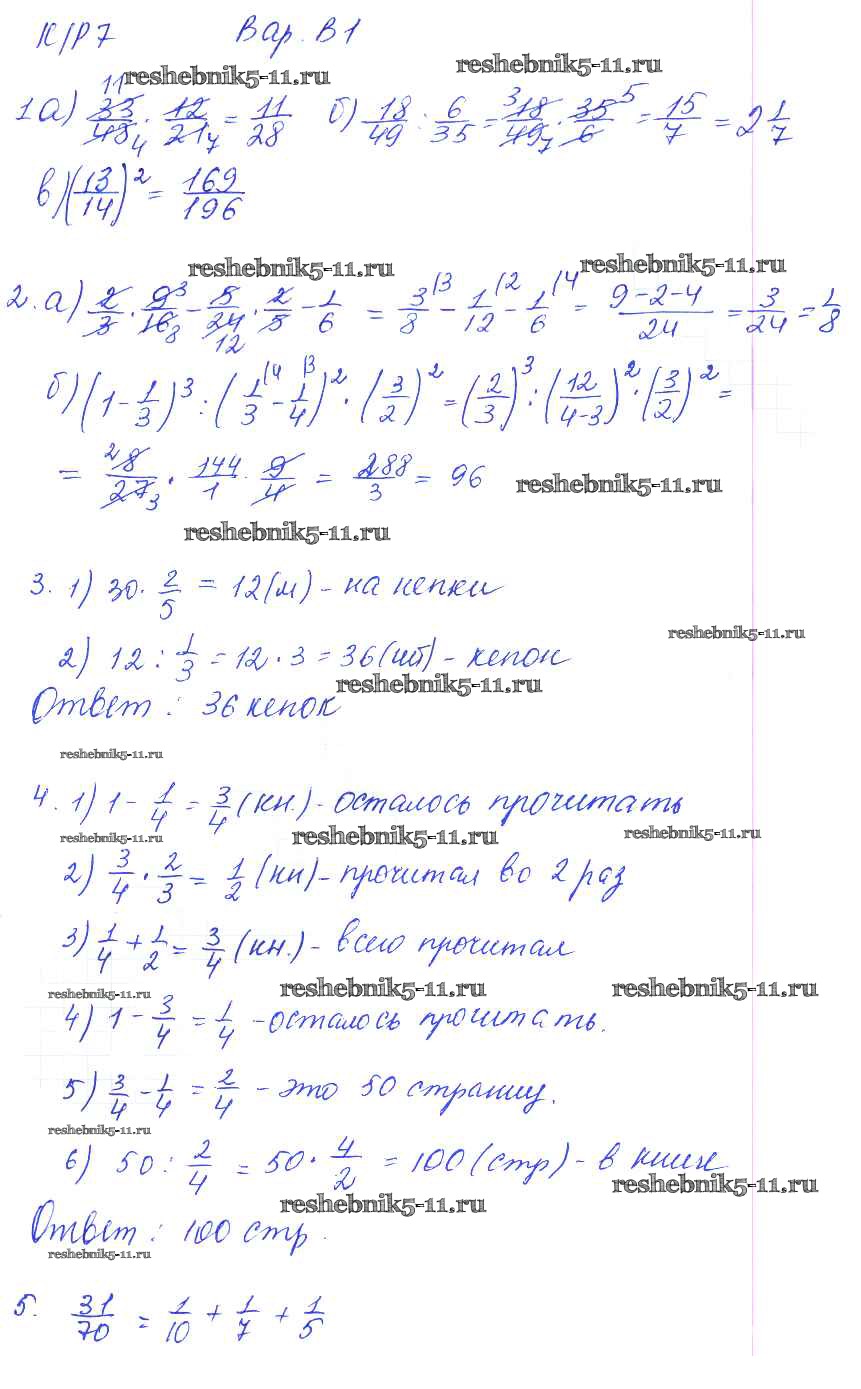 К/Р 7 Вар. В1
reshebnik5-11.ru reshebnik5-11.ru
1 а) 33/48 · 12/21 = 11/28 б) 18/49 : 6/35 = 18/49 · 35/6 = 15/7 = 2 1/7
в) (13/14)² = 169/196
reshebnik5-11.ru reshebnik5-11.ru
2. а) 2/3 · 9/16 - 5/24 · 2/5 - 1/6 = 3/8 - 1/12 - 1/6 = (9-2-4)/24 = 3/24 = 1/8
б) (1 - 1/3)³ : (1/3 - 1/4)² · (3/2)² = (2/3)³ : (12/4-3)² · (3/2)² =
= 8/27 · 144/1 · 9/4 = 288/3 = 96 reshebnik5-11.ru
reshebnik5-11.ru
3. 1) 30 · 2/5 = 12 (м) - на кепки
reshebnik5-11.ru
2) 12 : 1/3 = 12 · 3 = 36 (шт) - кепок
reshebnik5-11.ru
Ответ : 36 кепок
reshebnik5-11.ru
4. 1) 1 - 1/4 = 3/4 (кн.) - осталось прочитать
reshebnik5-11.ru reshebnik5-11.ru reshebnik5-11.ru
2) 3/4 · 2/3 = 1/2 (кн) - прочитал во 2 раз
3) 1/4 + 1/2 = 3/4 (кн.) - всего прочитал
reshebnik5-11.ru reshebnik5-11.ru reshebnik5-11.ru
4) 1 - 3/4 = 1/4 - осталось прочитать.
5) 3/4 - 1/4 = 2/4 - это 50 страниц.
reshebnik5-11.ru
6) 50 : 2/4 = 50 · 4/2 = 100 (стр) - в книге
reshebnik5-11.ru reshebnik5-11.ru
Ответ : 100 стр.
reshebnik5-11.ru
5. 31/70 = 1/10 + 1/7 + 1/5